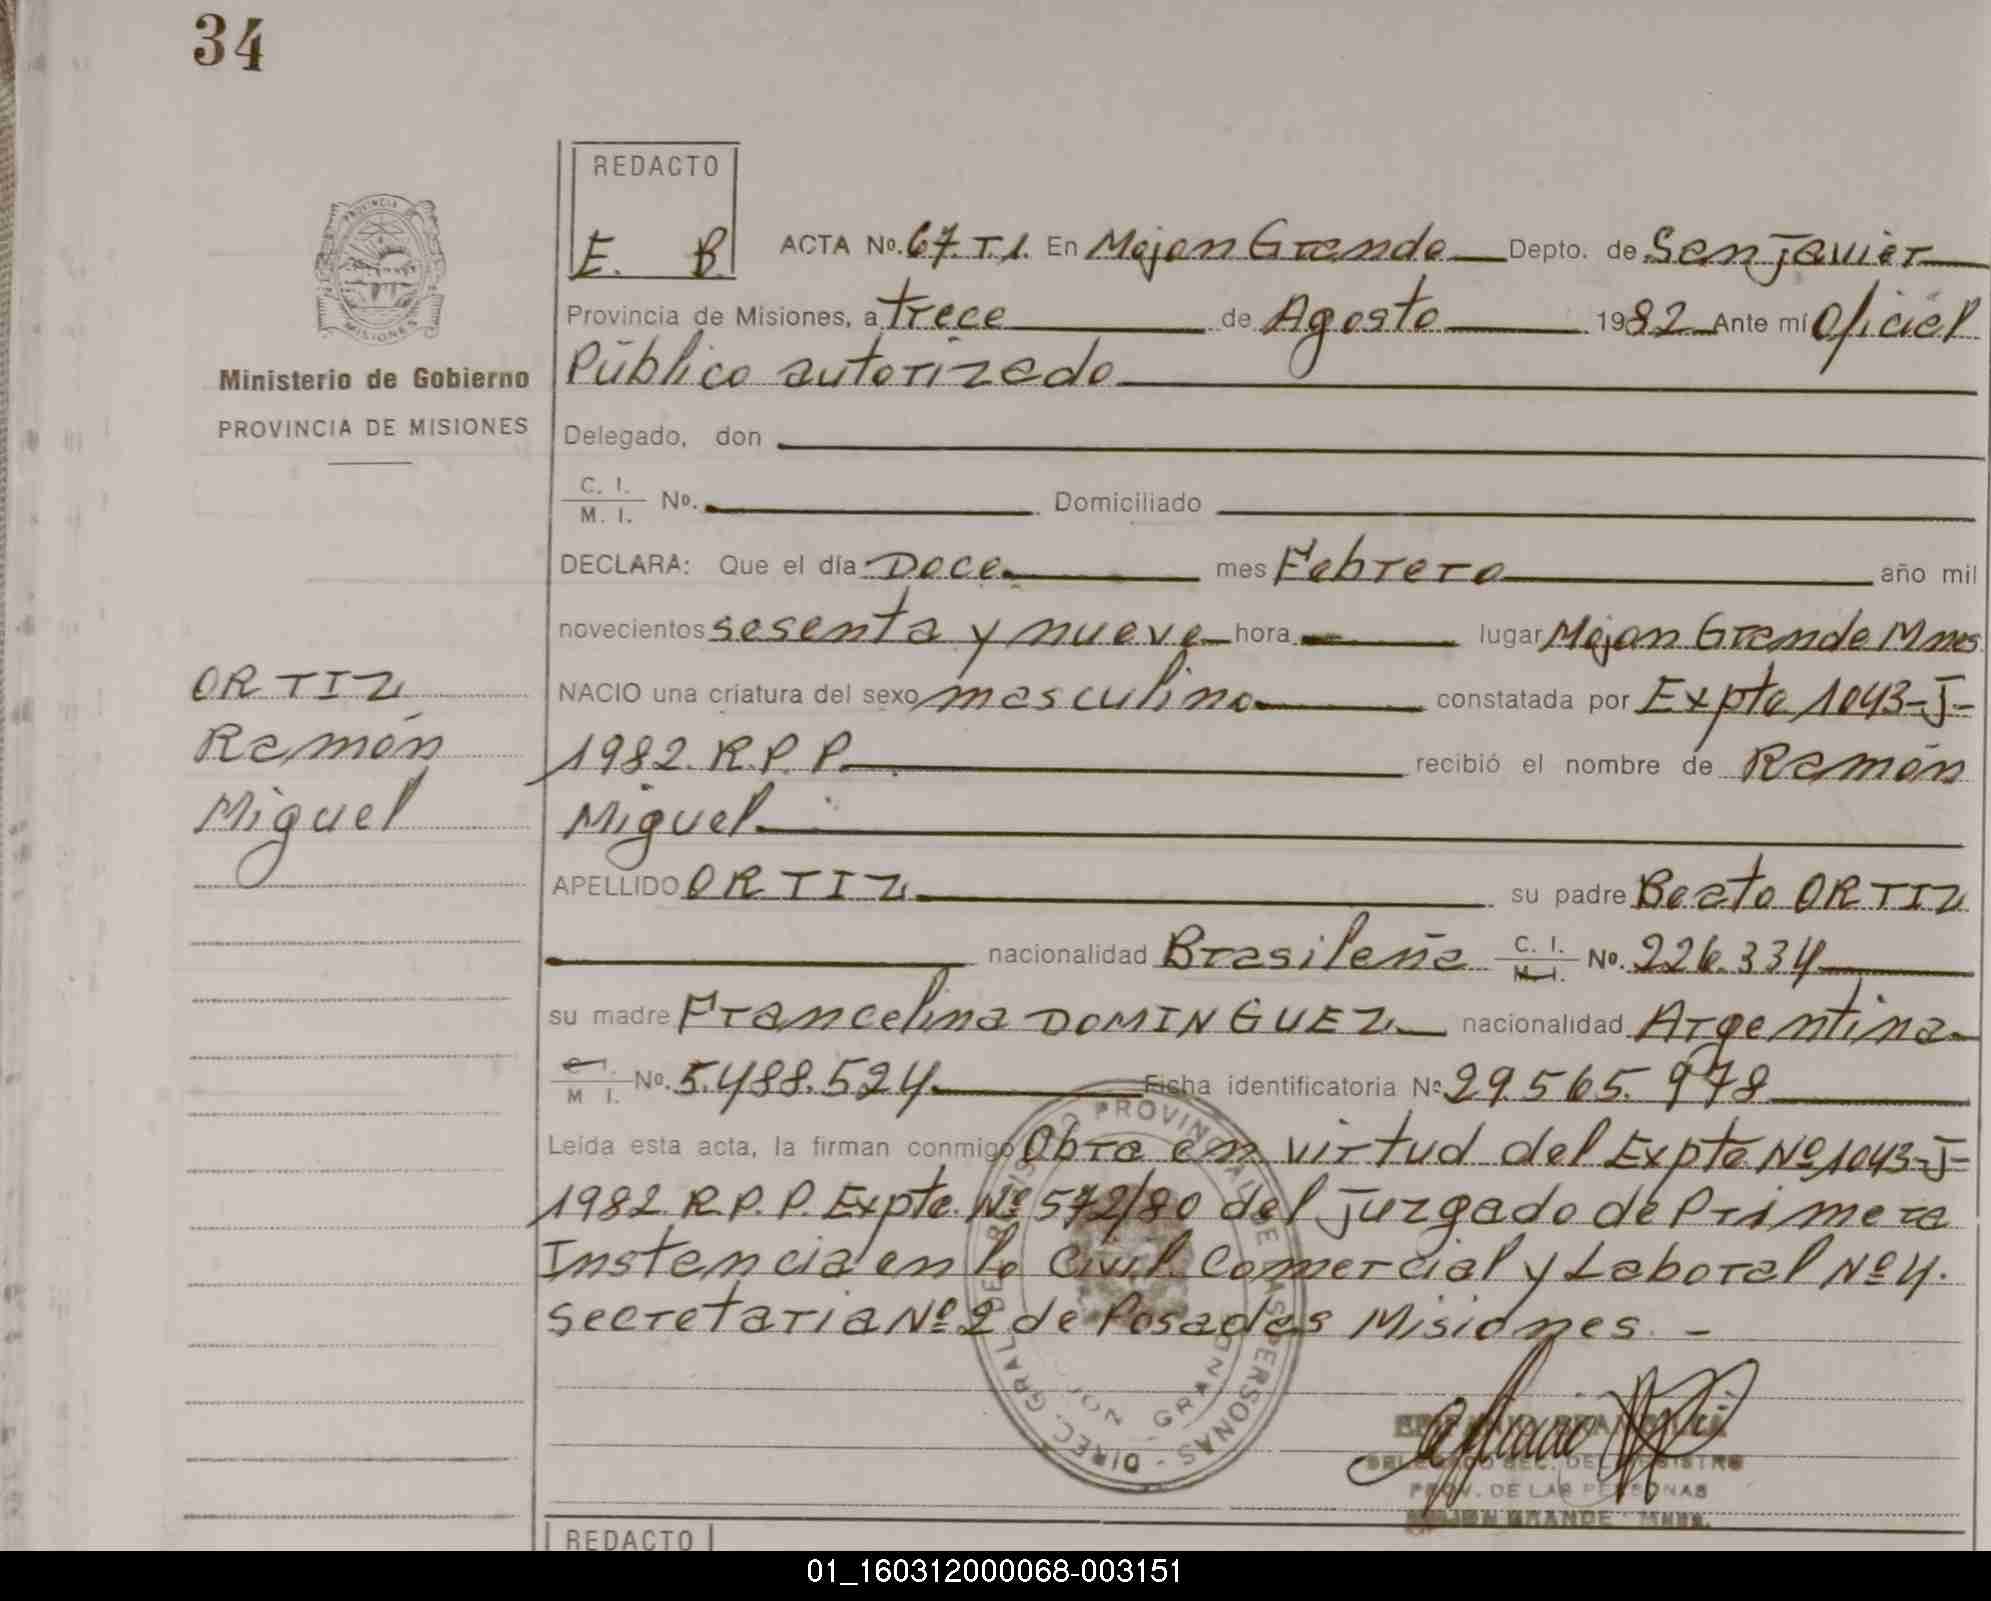 34
REDACTO
E. B.
PROVINCIA DE
MISIONES
Ministerio de Gobierno
PROVINCIA DE MISIONES
ORTIZ
Ramón
Miguel
ACTA No. 67. T.1. En Mojon Grande Depto. de San Javier
Provincia de Misiones, a trece de Agosto 1982 Ante mí Oficial
Público autorizado
Delegado, don
C. I. / M. I. No. Domiciliado
DECLARA: Que el día Doce mes Febrero año mil
novecientos sesenta y nueve hora lugar Mojon Grande Mnes
NACIO una criatura del sexo masculino constatada por Expte 1043-J-
1982. R.P.P. recibió el nombre de Ramón
Miguel
APELLIDO ORTIZ su padre Beato ORTIZ
nacionalidad Brasileña C. I. / M. I. No. 226.334
su madre Francelina DOMINGUEZ nacionalidad Argentina
C. I. / M. I. No. 5.488.524 Ficha identificatoria No 29.565.978
Leída esta acta, la firman conmigo Obra en virtud del Expte Nº 1043-J-
1982 R.P.P. Expte. Nº 572/80 del Juzgado de Primera
Instancia en lo Civil Comercial y Laboral Nº 4.
Secretaria Nº 2 de Posadas Misiones. -
DIREC. GRAL. DEL REGISTRO PROVINCIAL DE LAS PERSONAS
GRANDE
DELEGADO SEC. DEL REGISTRO
PROV. DE LAS PERSONAS
MOJON GRANDE - MNES.
REDACTO
01_160312000068-003151